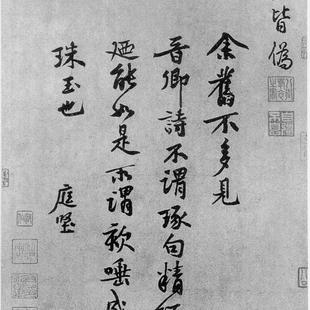 皆偽
余舊不多見
晉卿詩不謂琢句精
廼能如是所謂欬唾成
珠玉也
庭堅